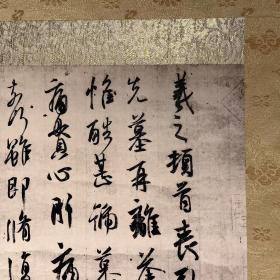 羲之頓首喪亂
先墓再離荼
惟酷甚號慕
痛貫心肝痛
奈何雖即脩復